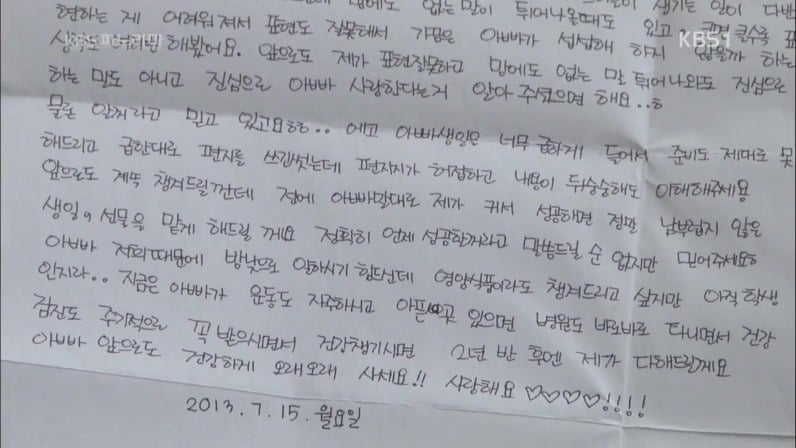 없는말이 튀어나올때도 생기는 일이 다반
현하는 게 어려워져서 표현도 잘못해서 가끔은 아빠가 섭섭해 하지 않을까 하는
생각도 해봤어요. 앞으로도 제가 표현잘못하고 맘에도 없는 말 튀어나와도 진심으로
하는 말도 아니고 진심으로 아빠 사랑한다는거 알아 주셨으면 해요..ㅎ
물론 알꺼라고 믿고 있고요ㅎㅎ.. 에고 아빠생일은 너무 급하게 들어서 준비도 제대로 못
해드리고 급한대로 편지를 쓰긴썻는데 편지지가 허접하고 내용이 뒤숭숭해도 이해해주세용
앞으로도 계쏙 챙겨드릴껀데 정에 아빠말대로 제가 커서 성공하면 정말 남부럽지 않은
생일, 선물을 맡게 해드릴 께요 정확히 언제 성공한꺼라고 말씀드릴 순 없지만 믿어주세요ㅎ
아빠 저희때문에 밤낮으로 일하시기 힘드신데 영양식품이라도 챙겨드리고 싶지만 아직 학생
인지라.. 지금은 아빠가 운동도 자주하시고 아픈 곳 있으면 병원도 바로바로 다니면서 건강
검진도 주기적으로 꼭 받으시면서 건강챙기시면 2년 반 후엔 제가 다해드릴게요
아빠 앞으로도 건강하게 오래오래 사세요!! 사랑해요 ♡♡♡♡!!!!
2013. 7. 15. 월요일
KBS1